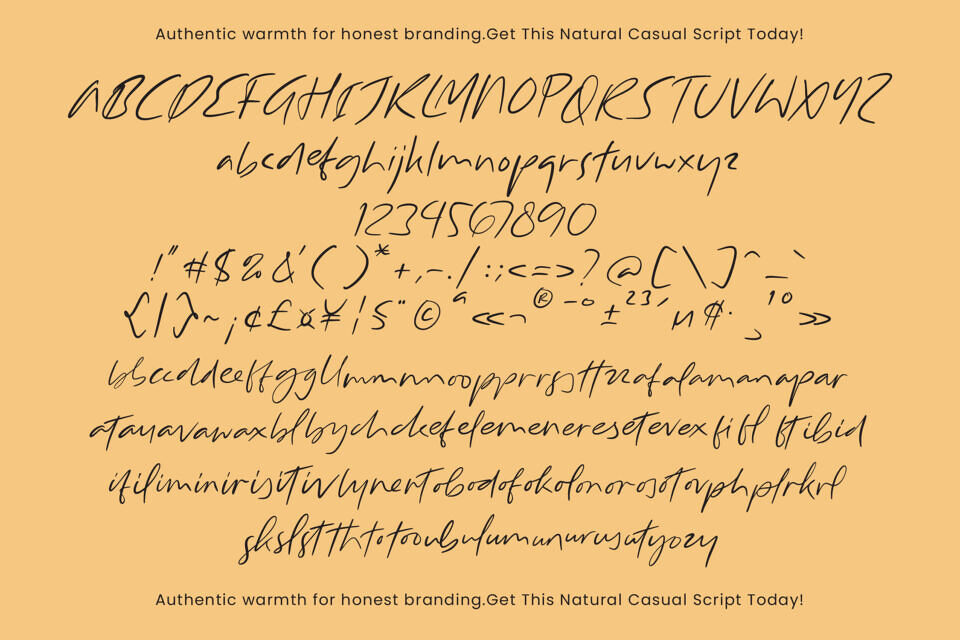 Authentic warmth for honest branding.Get This Natural Casual Script Today!
ABCDEFGHIJKLMNOPQRSTUVWXYZ
abcdefghijklmnopqrstuvwxyz
1234567890
!"#$%&'()*+,-./:;<=>?@[\]^_`
{|}~¡¢£¤¥¦§¨©ª«¬®¯°±²³´µ¶·¸¹º»
bbccddeeffggllmmnnoopprrssttzzafalamanapar
atauavawaxblbychckefelemeneresetevexfiflftibid
ifiliminirisitivlynertobodofokolonorosotovphplrkrl
skslstthtotooubulumunurusutyozy
Authentic warmth for honest branding.Get This Natural Casual Script Today!